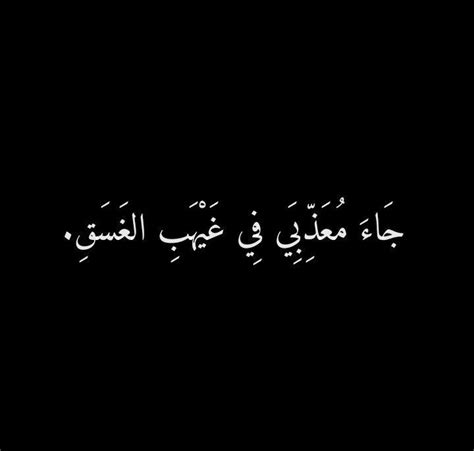 جَاءَ مُعَذِّبِيَ فِي غَيْهَبِ الغَسَقِ.